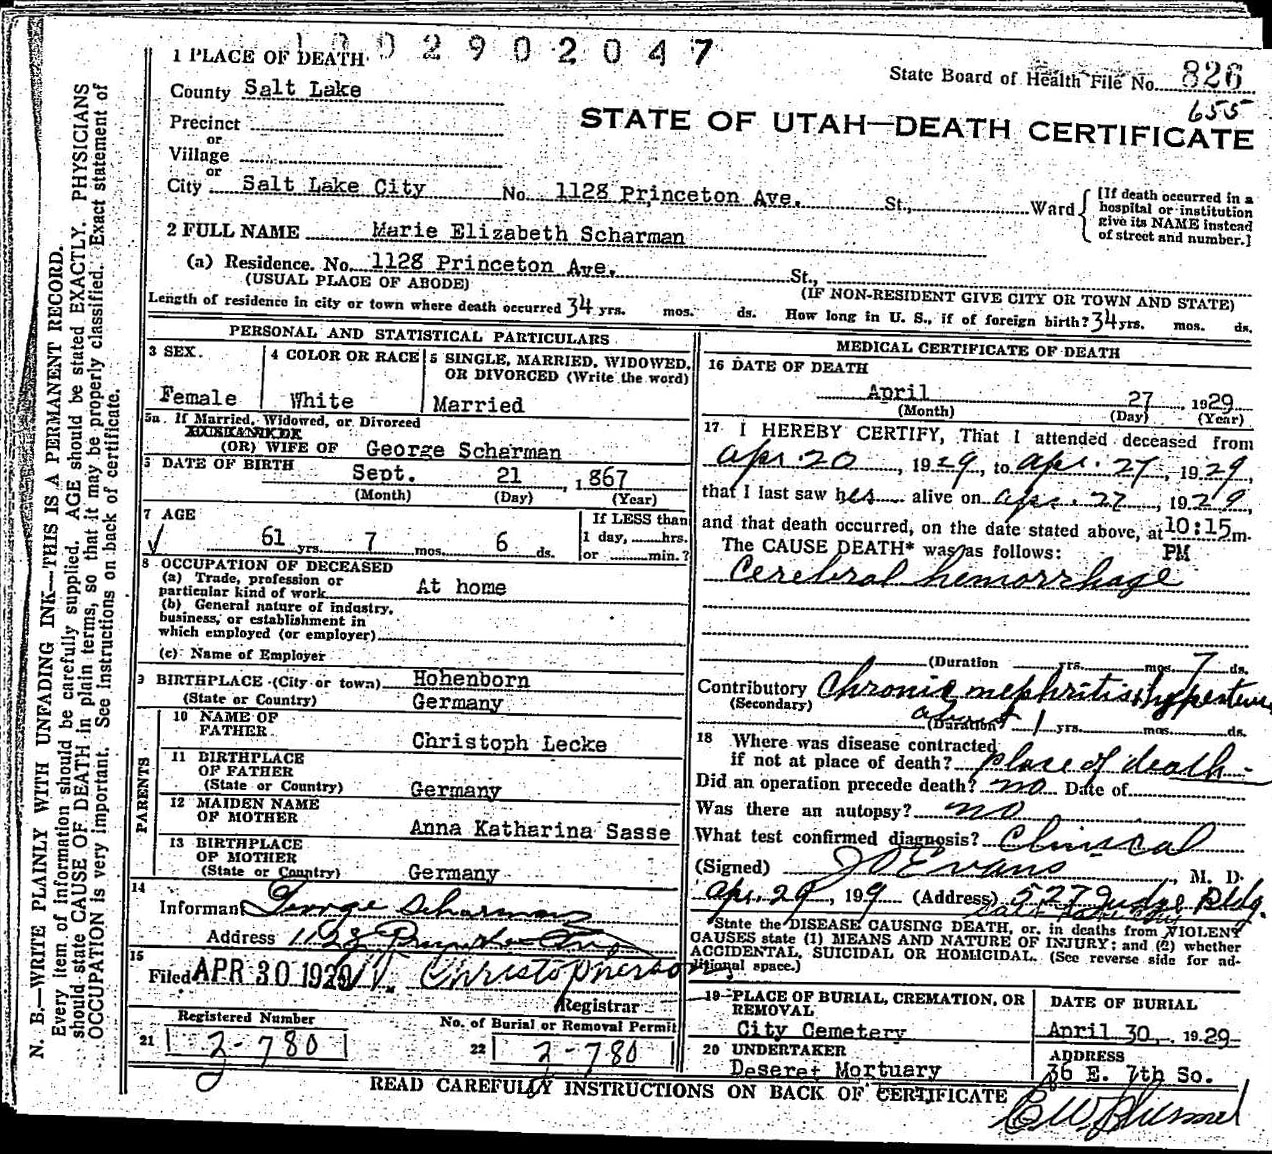 1002902047
State Board of Health File No. 826
655
1 PLACE OF DEATH
County Salt Lake
STATE OF UTAH—DEATH CERTIFICATE
Precinct
or
Village
or
City Salt Lake City No. 1128 Princeton Ave. St., Ward
[If death occurred in a
hospital or institution
give its NAME instead
of street and number.]
2 FULL NAME Marie Elizabeth Scharman
(a) Residence. No. 1128 Princeton Ave. St.,
(USUAL PLACE OF ABODE) (IF NON-RESIDENT GIVE CITY OR TOWN AND STATE)
Length of residence in city or town where death occurred 34 yrs. mos. ds. How long in U. S., if of foreign birth? 34 yrs. mos. ds.
PERSONAL AND STATISTICAL PARTICULARS
3 SEX.
Female
4 COLOR OR RACE
White
5 SINGLE, MARRIED, WIDOWED,
OR DIVORCED (Write the word)
Married
5a. If Married, Widowed, or Divorced
(OR) WIFE OF George Scharman
DATE OF BIRTH Sept. 21, 1867
(Month) (Day) (Year)
7 AGE
61 yrs. 7 mos. 6 ds.
If LESS than
1 day, hrs.
or min.?
8 OCCUPATION OF DECEASED
(a) Trade, profession or
particular kind of work At home
(b) General nature of industry,
business, or establishment in
which employed (or employer)
(c) Name of Employer
9 BIRTHPLACE (City or town) Hohenborn
(State or Country) Germany
PARENTS
10 NAME OF
FATHER Christoph Lecke
11 BIRTHPLACE
OF FATHER
(State or Country) Germany
12 MAIDEN NAME
OF MOTHER Anna Katharina Sasse
13 BIRTHPLACE
OF MOTHER
(State or Country) Germany
14
Informant George Scharman
Address 1128
15
Filed APR 30 1929 Christopherson
Registrar
Registered Number
21 2-780
No. of Burial or Removal Permit
22 2-780
MEDICAL CERTIFICATE OF DEATH
16 DATE OF DEATH
April 27 1929
(Month) (Day) (Year)
17 I HEREBY CERTIFY, That I attended deceased from
Apr. 20, 1929, to Apr. 27, 1929,
that I last saw her alive on Apr. 27, 1929,
and that death occurred, on the date stated above, at 10:15 m.
PM
The CAUSE DEATH* was as follows:
Cerebral hemorrhage
(Duration yrs. mos. 7 ds.
Contributory Chronic nephritis &
(Secondary)
about
(Duration) 1 yrs. mos. ds.
18 Where was disease contracted
if not at place of death? place of death
Did an operation precede death? no Date of
Was there an autopsy? no
What test confirmed diagnosis? Clinical
(Signed) J P Evans, M. D.
Apr. 29, 199 (Address) 527 Judge Bldg.
Salt Lake City
*State the DISEASE CAUSING DEATH, or, in deaths from VIOLENT
CAUSES state (1) MEANS AND NATURE OF INJURY; and (2) whether
ACCIDENTAL, SUICIDAL OR HOMICIDAL. (See reverse side for ad-
ditional space.)
19 PLACE OF BURIAL, CREMATION, OR
REMOVAL
City Cemetery
DATE OF BURIAL
April 30, 1929
20 UNDERTAKER
Deseret Mortuary
ADDRESS
36 E. 7th So.
READ CAREFULLY INSTRUCTIONS ON BACK OF CERTIFICATE
N. B.—WRITE PLAINLY WITH UNFADING INK—THIS IS A PERMANENT RECORD.
Every item of information should be carefully supplied. AGE should be stated EXACTLY. PHYSICIANS
should state CAUSE OF DEATH in plain terms, so that it may be properly classified. Exact statement of
OCCUPATION is very important. See instructions on back of certificate.